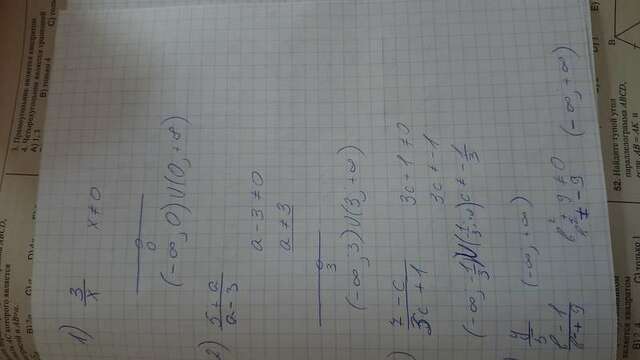 3. Прямоугольник является квадратом
4. Четырехугольник является трапецией
А) 1; 3
В) только 4
1) 3/x x ≠ 0
0
(-∞, 0) U (0, +∞)
2) 5+a/a-3
a - 3 ≠ 0
a ≠ 3
3
(-∞, 3) U (3, +∞)
) 7-c/3c+1 3c+1 ≠ 0
3c ≠ -1
(-∞, -1/3) U (1/3, +∞) c ≠ -1/3
) y/5 (-∞, +∞)
b-1/b²+9 b²+9 ≠ 0 (-∞, +∞)
b² ≠ -9
является квадратом
2; 4
С) только 1
52. Найдите тупой угол
параллелограмма ABCD,
если AB = AK и
B